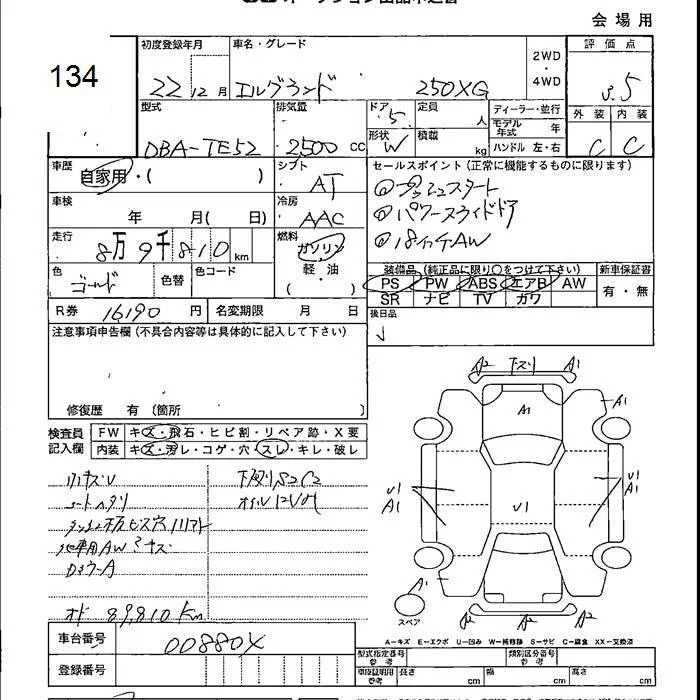 会場用
134
初度登録年月
車名・グレード
2WD
・
4WD
評価点
22 12月
エルグランド 250XG
3.5
型式
排気量
ドア
定員
ディーラー・並行
外装 内装
5
人
モデル年式 年
DBA-TE52
2500 CC
形状
W
積載
kg
ハンドル 左・右
C C
車歴
自家用・( )
シフト
AT
セールスポイント(正常に機能するものに限ります)
車検
年 月( 日)
冷房
AAC
パワースライドドア
18インチAW
走行
8万9千810 km
燃料
ガソリン
軽・油
( )
色
ゴールド
色替
色コード
装備品(純正品に限り○をつけて下さい)
新車保証書
PS PW ABS エアB AW
有・無
SR ナビ TV カワ
R券 16190 円
名変期限 月 日
後日品
注意事項申告欄(不具合内容等は具体的に記入して下さい)
修復歴 有(箇所
検査員
記入欄
FW キズ・飛石・ヒビ割・リペア跡・X要
内装 キズ・汚レ・コゲ・穴・スレ・キレ・破レ
A2 A1
A1
A1
U1
A1
U1
U1
A1
A1
A2 A2
スペア
オド 89,810 Km
A-キズ E-エクボ U-凹み W-補修跡 S-サビ C-腐食 XX-交換済
車台番号
00880X
登録番号
型式指定番号
参考
類別区分番号
参考
車庫証明用
参考
長さ cm
幅 cm
高さ cm